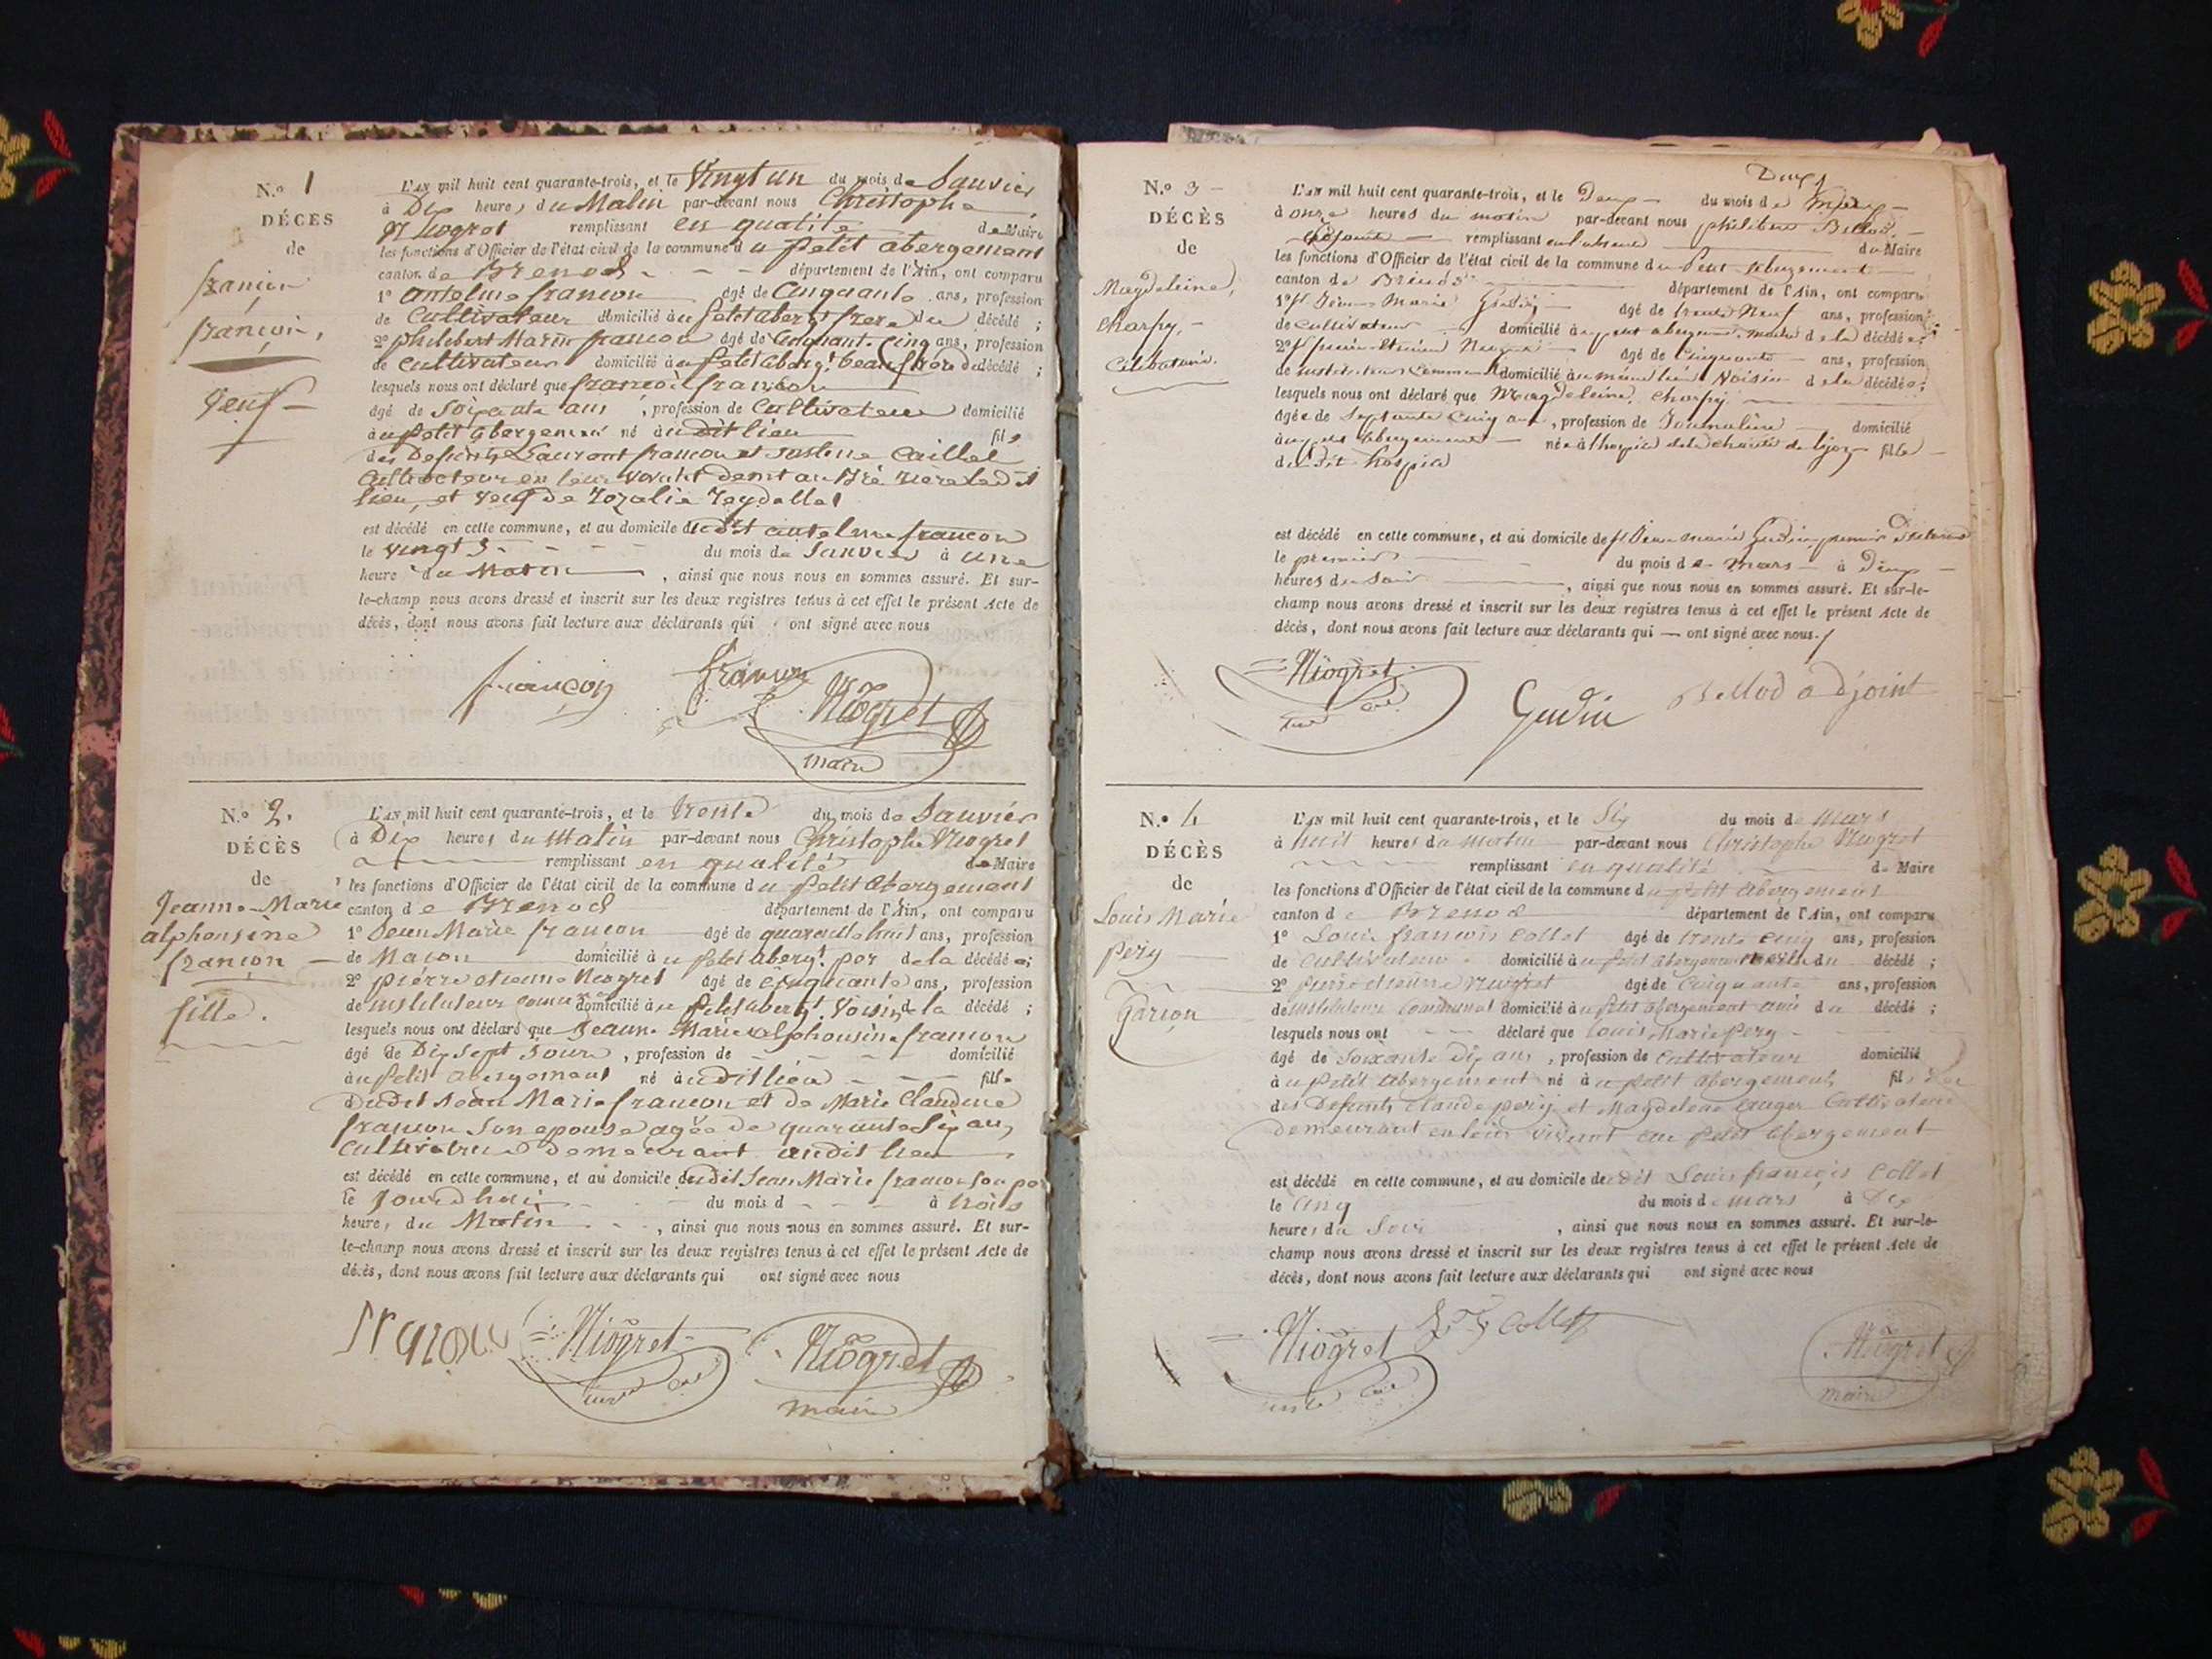 N.º 1
DÉCÈS
de
françois
françon,
Veuf
L'AN mil huit cent quarante-trois, et le Vingt un du mois de Janvier
à Dix heures du Matin par-devant nous Christophe
Niogret remplissant en qualité de Maire
les fonctions d'Officier de l'état civil de la commune du petit abergement
canton de Brenod département de l'Ain, ont comparu
1º antelme françon âgé de Cinquante ans, profession
de Cultivateur domicilié au petit aberg.t frere du décédé ;
2º philibert Marin françon âgé de Cinquant-cinq ans, profession
de Cultivateur domicilié au petit aberg.t beau frere du décédé ;
lesquels nous ont déclaré que françois françon
âgé de Soixante ans, profession de Cultivateur domicilié
au petit abergement né audit lieu fils
des Defunts Laurent françon et Caillet
Cultivateur en leur vivant
lieu, et veuf de Rozalie Reydellet
est décédé en cette commune, et au domicile dudit antelme françon
le vingt du mois de Janvier à une
heure du Matin, ainsi que nous nous en sommes assuré. Et sur-
le-champ nous avons dressé et inscrit sur les deux registres tenus à cet effet le présent Acte de
décès, dont nous avons fait lecture aux déclarants qui ont signé avec nous
françon françon Niogret
maire
N.º 2.
DÉCÈS
de
Jeanne-Marie
alphonsine
françon
fille.
L'AN mil huit cent quarante-trois, et le trente du mois de Janvier
à Dix heures du Matin par-devant nous Christophe Niogret
remplissant en qualité de Maire
les fonctions d'Officier de l'état civil de la commune du petit Abergement
canton de Brenod département de l'Ain, ont comparu
1º Jean Marie françon âgé de quarente huit ans, profession
de Macon domicilié au petit aberg.t per de la décédée ;
2º pierre etienne Niogret âgé de Cinquante ans, profession
de instituteur domicilié au petit aberg.t Voisin de la décédé ;
lesquels nous ont déclaré que Jeanne Marie alphonsine françon
âgé de Dix sept Jours, profession de domicilié
au petit abergement né audit lieu fille
Dudit Jean Marie françon et de Marie Claudine
françon Son epouse agée de quarante Six ans,
Cultivatrice Demeurant audit lieu
est décédé en cette commune, et au domicile dudit Jean Marie françon son per
le Jourdhui du mois d à trois
heures du Matin, ainsi que nous nous en sommes assuré. Et sur-
le-champ nous avons dressé et inscrit sur les deux registres tenus à cet effet le présent Acte de
décès, dont nous avons fait lecture aux déclarants qui ont signé avec nous
françon Niogret Niogret
maire
Deux
N.º 3
DÉCÈS
de
Magdeleine
Charpy,
Célibataire.
L'AN mil huit cent quarante-trois, et le Deux du mois de Mars
à onze heures du matin par-devant nous philibert Bellod,
remplissant en l'absence du Maire
les fonctions d'Officier de l'état civil de la commune du Petit Abergement
canton de Brenod département de l'Ain, ont comparu
1º Jean Marie Gudin âgé de trente Neuf ans, profession
de cultivateur domicilié au petit abergement, de la décédée ;
2º pierre Etienne Niogret âgé de Cinquante ans, profession
de instituteur Communal domicilié au même lieu Voisin de la décédée ;
lesquels nous ont déclaré que Magdeleine Charpy
âgée de Septante Cinq ans, profession de Journalière domicilié
au petit abergement née à l'hospice de la charité de Lyon fille
dudit hospice
est décédé en cette commune, et au domicile de Jean marie Gudin premier
le premier du mois de mars à Deux
heures du Soir, ainsi que nous nous en sommes assuré. Et sur-le-
champ nous avons dressé et inscrit sur les deux registres tenus à cet effet le présent Acte de
décès, dont nous avons fait lecture aux déclarants qui ont signé avec nous.
Niogret Gudin Bellod adjoint
N.º 4
DÉCÈS
de
Louis Marie
pery
Garçon
L'AN mil huit cent quarante-trois, et le Six du mois de Mars
à huit heures du matin par-devant nous Christophe Niogret
remplissant en qualité de Maire
les fonctions d'Officier de l'état civil de la commune du petit abergement
canton de Brenod département de l'Ain, ont comparu
1º Louis françois Collet âgé de trente cinq ans, profession
de Cultivateur domicilié au petit abergement du décédé ;
2º pierre etienne Niogret âgé de Cinquante ans, profession
de instituteur Communal domicilié au petit abergement ami du décédé ;
lesquels nous ont déclaré que Louis Marie pery
âgé de Soixante Dix ans, profession de Cultivateur domicilié
au petit abergement né au petit abergement, fils
des Defunts Claude pery et Magdelene Cultivateur
Demeurant en leur vivant au petit abergement
est décédé en cette commune, et au domicile dudit Louis françois Collet
le Cinq du mois de mars à Dix
heures du Soir, ainsi que nous nous en sommes assuré. Et sur-le-
champ nous avons dressé et inscrit sur les deux registres tenus à cet effet le présent Acte de
décès, dont nous avons fait lecture aux déclarants qui ont signé avec nous
Niogret Collet Niogret
maire